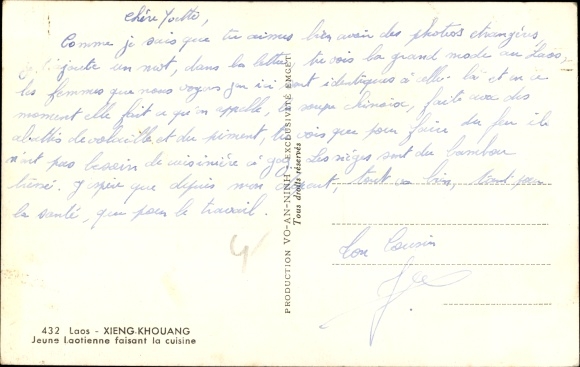 Chère Yvette,
Comme je sais que tu aimes bien avoir des photos étrangères,
joute un mot, dans la lettre, tu vois la grand mode au Laos,
les femmes que nous voyons par ici, sont identiques à celle-là et en ce
moment elle fait ce qu'on appelle, la soupe chinoise, faite avec des
abattis de volaille et du piment, tu vois que pour faire du feu ils
n'ont pas besoin de cuisinière à gaz. Les sièges sont du bambou
tréssé. J'espère que depuis mon, tout va bien, tant pour
la santé, que pour le travail.
Ton Cousin
PRODUCTION VO-AN-NINH - EXCLUSIVITÉ EMGET
Tous droits réservés
432 Laos - XIENG-KHOUANG
Jeune Laotienne faisant la cuisine